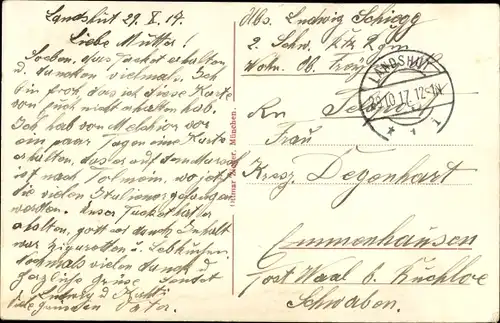 Landshut 29. X. 17.
Liebe Mutter!
Soeben das Packet erhalten
u. danken vielmals. Ich
bin froh, das ich diese Karte
von euch erhalten hab.
Ich hab von Melchior vor
ein paar Tagen eine Karte
erhalten, das er auf dem Marsch
ist nach Tolmein, wo jetzt
die vielen Italiener gefangen
werden. Unser Packet hat er
erhalten, Inhalt
war Zigaretten u. Lebkuchen.
nochmals vielen dank u.
herzliche Grüße Sendet
Ludwig u.
Vater.
Ottmar Zieher, München.
Abs. Ludwig Schiegg
2. Schw.
LANDSHUT
29.10.17. 12-1N
An
Frau
Kresz. Degenhart
Emmenhausen
Post Waal b. Buchloe
Schwaben.